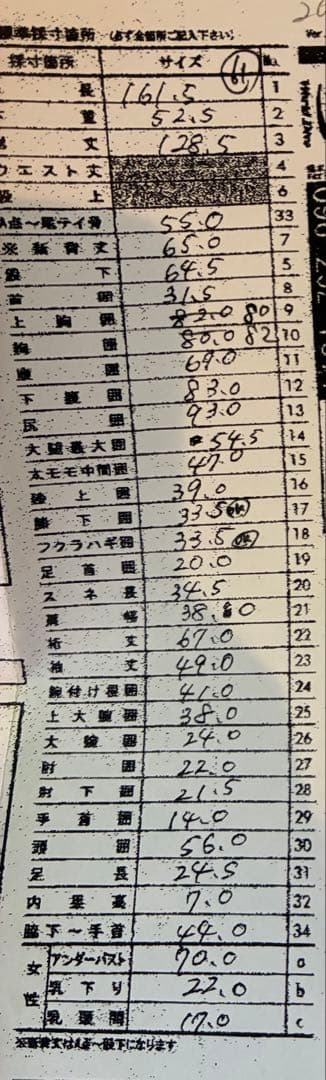 標準採寸箇所 (必ず全箇所ご記入下さい) Ver
採寸箇所 サイズ 61 No.
長 161.5 1
重 52.5 2
丈 128.5 3
ウエスト丈 4
股上 6
A点～尾テイ骨 55.0 33
※ 丈 65.0 7
股下 64.5 5
首囲 31.5 8
上胸囲 82.0 80 9
胸囲 80.0 82 10
腹囲 69.0 11
下腹囲 83.0 12
尻囲 93.0 13
大腿最大囲 54.5 14
太モモ中間囲 47.0 15
膝上囲 39.0 16
膝下囲 33.5 OK 17
フクラハギ囲 33.5 OK 18
足首囲 20.0 19
スネ長 34.5 20
肩幅 38.0 21
裄丈 67.0 22
袖丈 49.0 23
腕付け根囲 41.0 24
上大腕囲 38.0 25
大腕囲 24.0 26
肘囲 22.0 27
肘下囲 21.5 28
手首囲 14.0 29
頭囲 56.0 30
足長 24.5 31
内踝高 7.0 32
脇下～手首 44.0 34
女性
アンダーバスト 70.0 a
乳下り 22.0 b
乳頭間 17.0 c